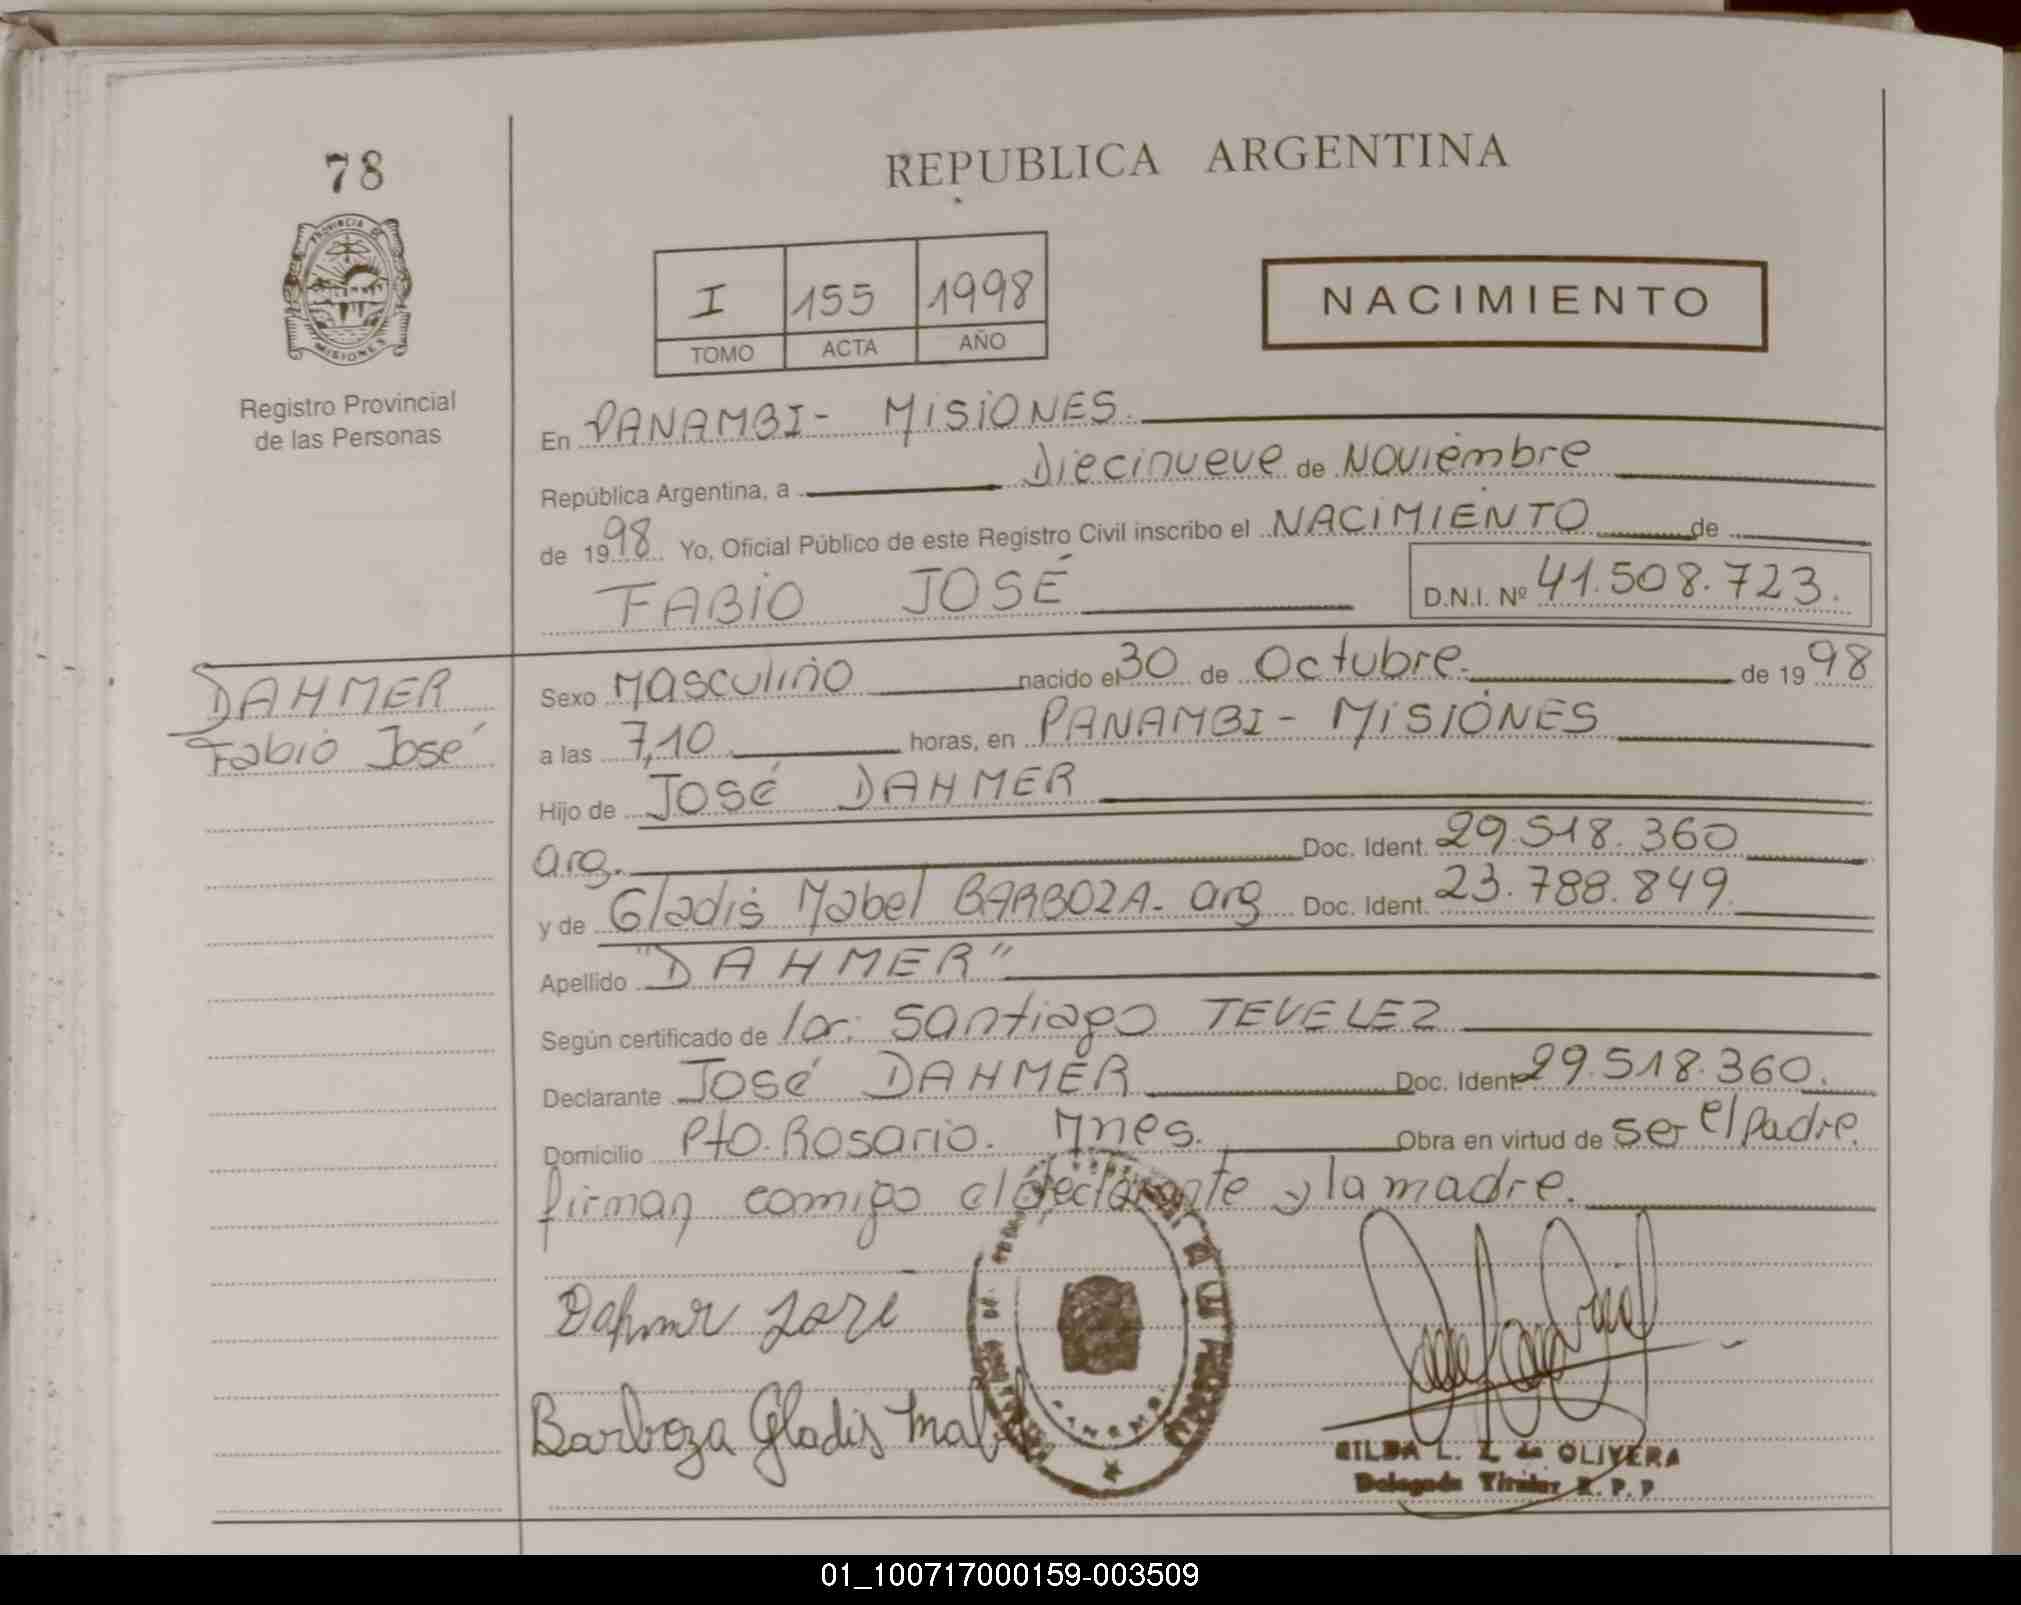 78
REPUBLICA ARGENTINA
PROVINCIA DE
MISIONES
Registro Provincial
de las Personas
I 155 1998
TOMO ACTA AÑO
NACIMIENTO
En PANAMBI - MISIONES.
República Argentina, a Diecinueve de Noviembre
de 1998 Yo, Oficial Público de este Registro Civil inscribo el NACIMIENTO de
FABIO JOSÉ D.N.I. Nº 41.508.723.
DAHMER
Fabio José
Sexo Masculino nacido el 30 de Octubre. de 1998
a las 7,10 horas, en PANAMBI - MISIONES
Hijo de José DAHMER
arg. Doc. Ident. 29.518.360
y de Gladis Mabel BARBOZA. arg Doc. Ident. 23.788.849
Apellido "DAHMER"
Según certificado de Santiago TEVELEZ
Declarante José DAHMER Doc. Ident. 29.518.360.
Domicilio Pto. Rosario. Mnes. Obra en virtud de ser el Padre.
firman comigo el declarante y la madre.
Dahmer José
Barboza Gladis Mabel
PANAMBI
GILDA L. Z. de OLIVERA
Delegada Titular R. P. P
01_100717000159-003509